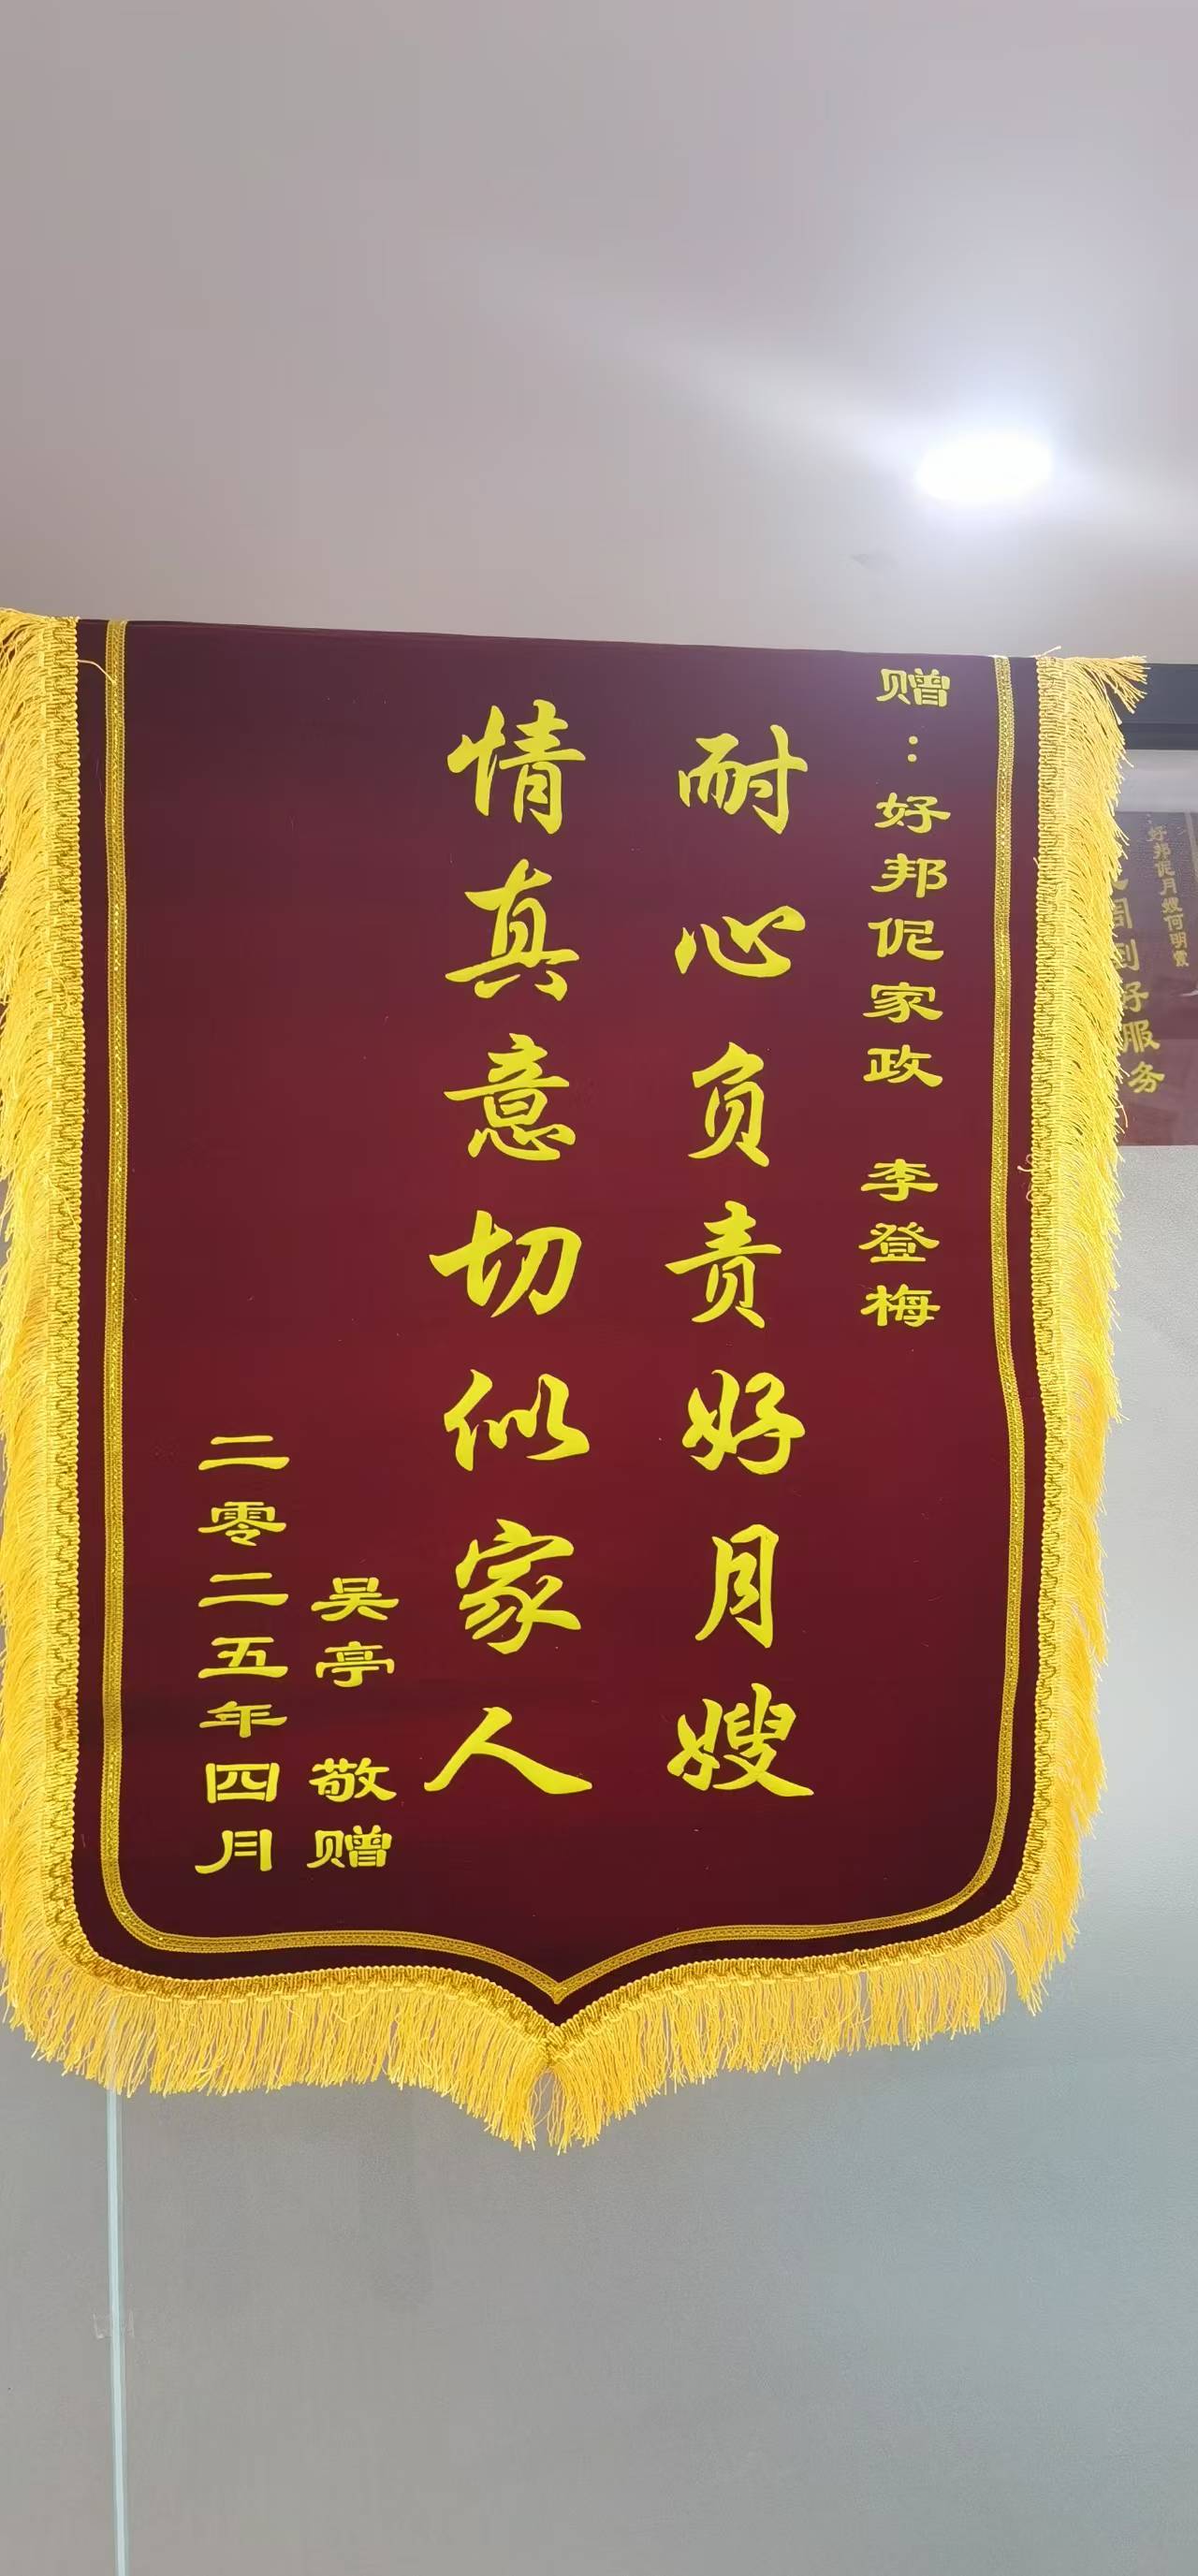 赠：好邦伲家政 李登梅
耐心负责好月嫂
情真意切似家人
吴亭 敬赠
二零二五年四月
好邦伲月嫂何明霞
周到好服务